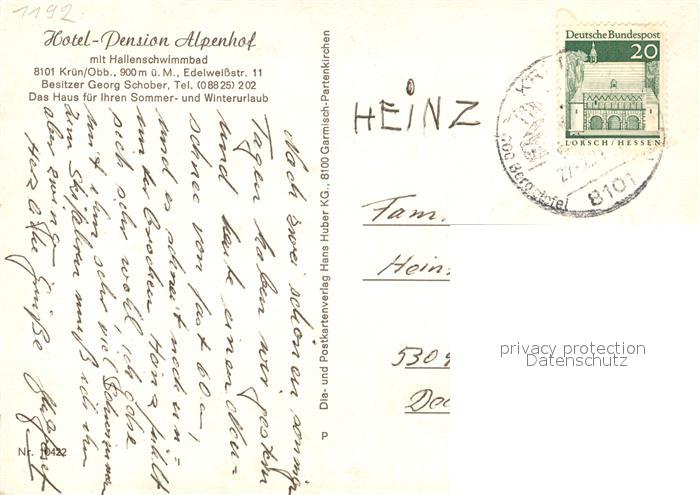 1192
Hotel-Pension Alpenhof
mit Hallenschwimmbad
8101 Krün/Obb., 900 m ü. M., Edelweißstr. 11
Besitzer Georg Schober, Tel. (0 88 25) 202
Das Haus für Ihren Sommer- und Winterurlaub
Nach zwei schönen, sonnigen
Tagen haben wir gestern
und heute einen Neu-
schnee von fast 60 cm,
und es schneit noch un-
unterbrochen. Heinz fühlt
sich sehr wohl, ich gehe
mit ihm sehr viel Schwimmen
zum Skifahren muß ich ihn
aber zwingen
Herzliche Grüße
Nr. 10422
Dia- und Postkartenverlag Hans Huber KG., 8100 Garmisch-Partenkirchen
P
HEINZ
Deutsche Bundespost
20
LORSCH/HESSEN
8101
Fam.
Hein
530
privacy protection
Datenschutz